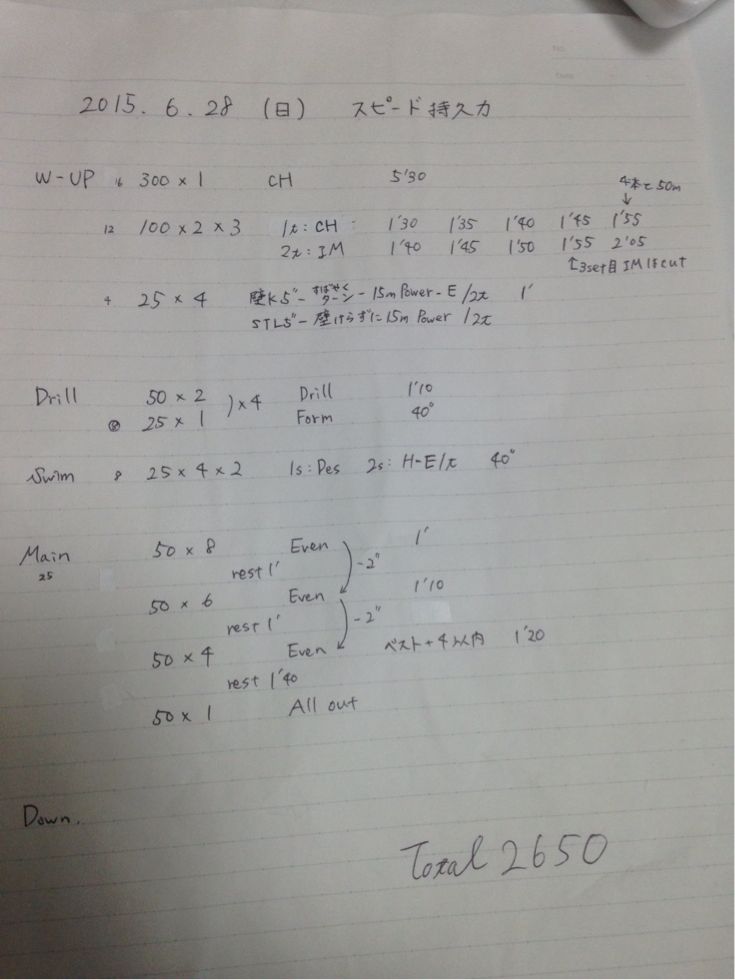 2015. 6. 28 (日) スピード持久力
4本で50m
↓
W-UP 300 × 1 CH 5'30
12 100 × 2 × 3 1t: CH 1'30 1'35 1'40 1'45 1'55
2t: IM 1'40 1'45 1'50 1'55 2'05
↑3set目 IMはcut
4 25 × 4 壁K5"- すばやくターン - 15m Power - E /2t 1'
STL5"- 壁けらずに15m Power /2t
Drill 50 × 2 ) × 4 Drill 1'10
25 × 1 Form 40"
Swim 8 25 × 4 × 2 1s: Des 2s: H-E/t 40"
Main 50 × 8 Even 1'
25
rest 1' -2"
50 × 6 Even 1'10
rest 1' -2"
50 × 4 Even ベスト+4以内 1'20
rest 1'40
50 × 1 All out
Down.
Total 2650